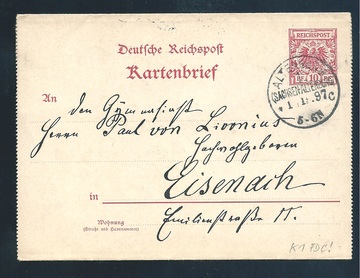 Deutsche Reichspost
Kartenbrief
REICHSPOST
10
5-6N
An den Gymnasiast
Herrn Paul von Livonius
Hochwohlgeboren
in Eisenach
Wohnung
(Straße und Hausnummer)
Emilienstraße 11.
K1